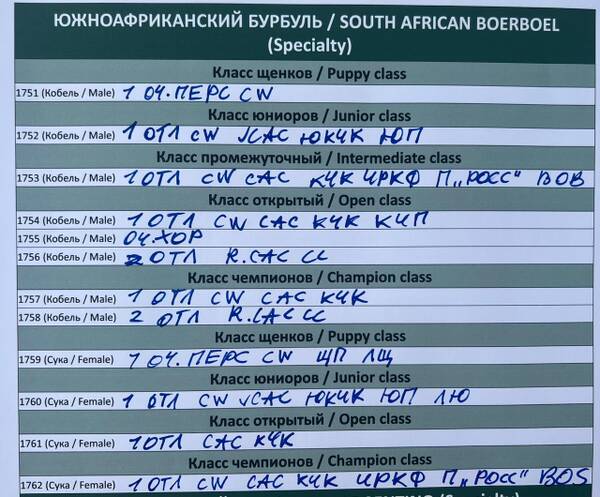 ЮЖНОАФРИКАНСКИЙ БУРБУЛЬ / SOUTH AFRICAN BOERBOEL
(Specialty)
Класс щенков / Puppy class
1751 (Кобель / Male) 1 ОЧ.ПЕРС CW
Класс юниоров / Junior class
1752 (Кобель / Male) 1 ОТЛ CW JCAC ЮКЧК ЮП
Класс промежуточный / Intermediate class
1753 (Кобель / Male) 1 ОТЛ CW CAC КЧК ЧРКФ П „РОСС“ BOB
Класс открытый / Open class
1754 (Кобель / Male) 1 ОТЛ CW CAC КЧК КЧП
1755 (Кобель / Male) ОЧ.ХОР
1756 (Кобель / Male) 2 ОТЛ R.CAC CC
Класс чемпионов / Champion class
1757 (Кобель / Male) 1 ОТЛ CW CAC КЧК
1758 (Кобель / Male) 2 ОТЛ R.CAC CC
Класс щенков / Puppy class
1759 (Сука / Female) 1 ОЧ.ПЕРС CW ЩП ЛЩ
Класс юниоров / Junior class
1760 (Сука / Female) 1 ОТЛ CW JCAC ЮКЧК ЮП ЛЮ
Класс открытый / Open class
1761 (Сука / Female) 1 ОТЛ CAC КЧК
Класс чемпионов / Champion class
1762 (Сука / Female) 1 ОТЛ CW CAC КЧК ЧРКФ П „РОСС“ BOS